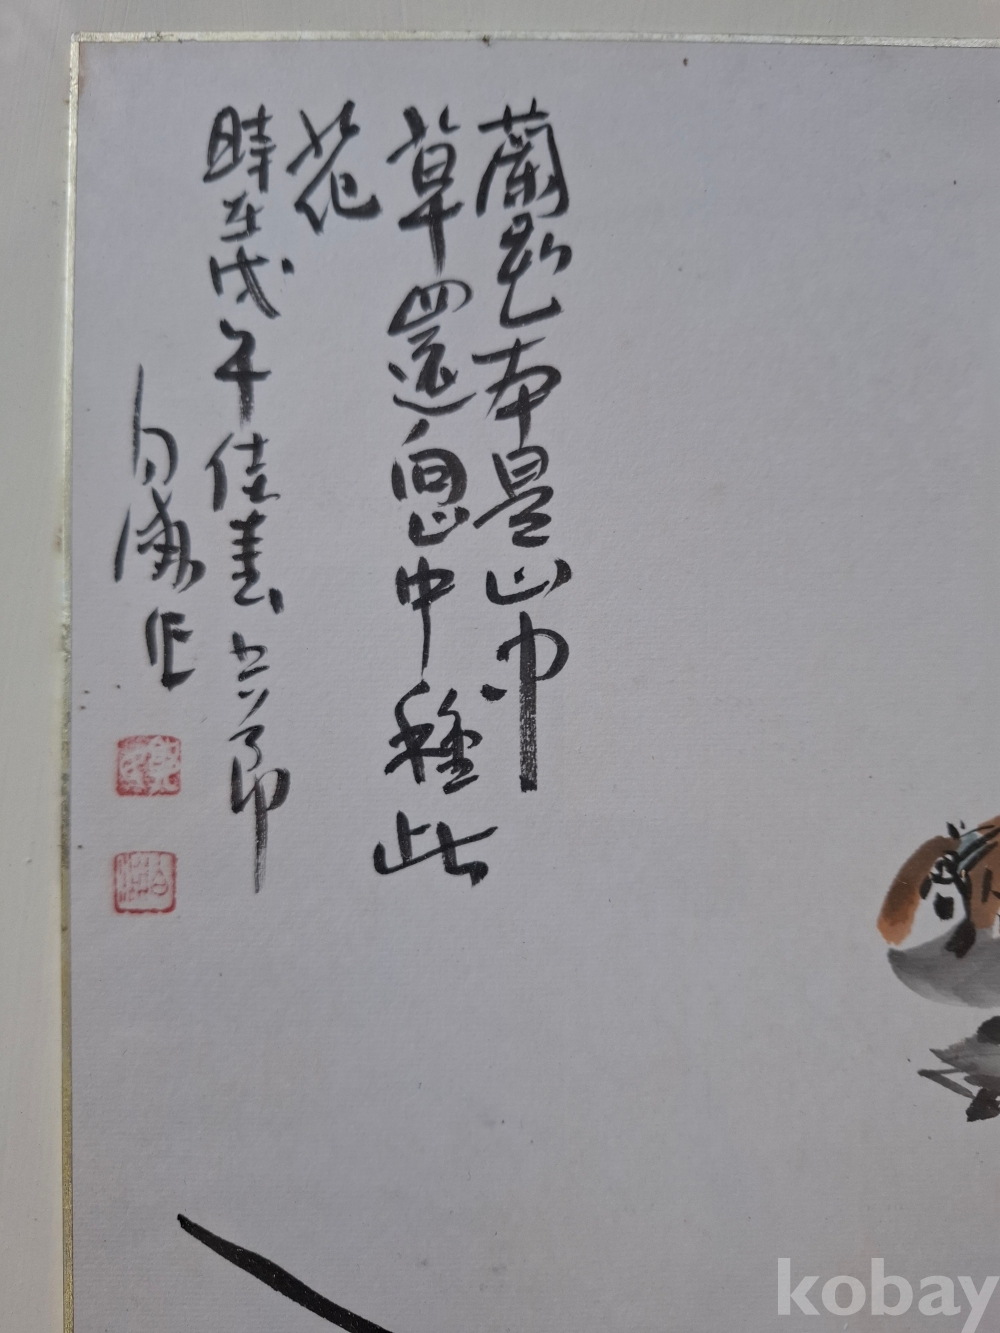 蘭 本是山中
草 還向山中種此
花
時在戊午佳春 節
作
kobay